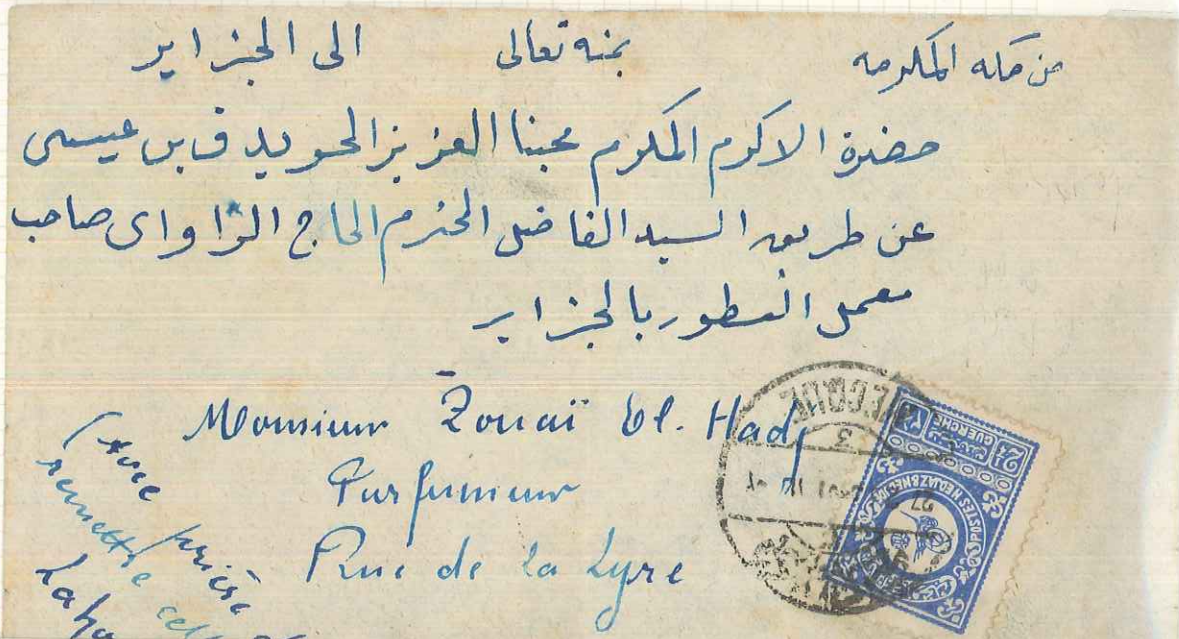 من مكه المكرمه بمنه تعالى الى الجزاير
حضرة الاكرم المكرم محبنا العزيز بن عيسى
عن طريق السيد الفاضل المحترم الحاج الزاواى صاحب
معمل العطور بالجزاير
Monsieur Zouaï El. Hadj
Parfumeur
Rue de la Lyre
(Avec prière
remettre
MECQUE
3
27
2½ GUERCHE
POSTES HEDJAZ & NEDJDE